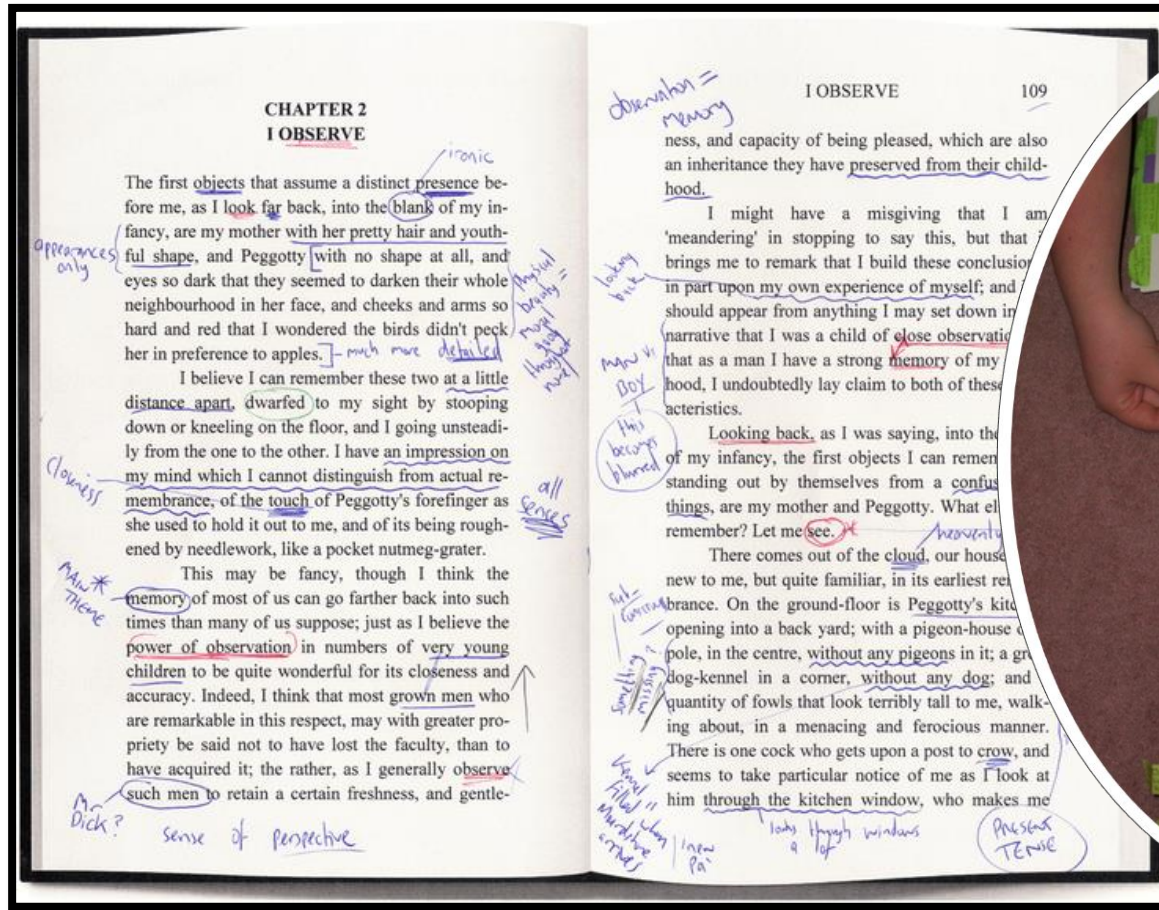 CHAPTER 2
I OBSERVE
ironic
The first objects that assume a distinct presence be-
fore me, as I look far back, into the blank of my in-
fancy, are my mother with her pretty hair and youth-
appearances
only
ful shape, and Peggotty with no shape at all, and
eyes so dark that they seemed to darken their whole
neighbourhood in her face, and cheeks and arms so
hard and red that I wondered the birds didn't peck
her in preference to apples.
much more detailed
physical
beauty =
moral
throughout
novel
I believe I can remember these two at a little
distance apart, dwarfed to my sight by stooping
down or kneeling on the floor, and I going unsteadi-
ly from the one to the other. I have an impression on
closeness
my mind which I cannot distinguish from actual re-
membrance, of the touch of Peggotty's forefinger as
she used to hold it out to me, and of its being rough-
ened by needlework, like a pocket nutmeg-grater.
all
senses
This may be fancy, though I think the
MAIN *
THEME
memory of most of us can go farther back into such
times than many of us suppose; just as I believe the
power of observation in numbers of very young
children to be quite wonderful for its closeness and
accuracy. Indeed, I think that most grown men who
are remarkable in this respect, may with greater pro-
priety be said not to have lost the faculty, than to
have acquired it; the rather, as I generally observe
such men to retain a certain freshness, and gentle-
Mr
Dick?
sense of perspective
I OBSERVE 109
observation =
memory
ness, and capacity of being pleased, which are also
an inheritance they have preserved from their child-
hood.
I might have a misgiving that I am
'meandering' in stopping to say this, but that
brings me to remark that I build these conclusion
looking
back
in part upon my own experience of myself; and
should appear from anything I may set down in
narrative that I was a child of close observatio
that as a man I have a strong memory of my
hood, I undoubtedly lay claim to both of these
acteristics.
MAN V.
BOY
this
becomes
blurred
Looking back, as I was saying, into the
of my infancy, the first objects I can remem
standing out by themselves from a confus
things, are my mother and Peggotty. What el
remember? Let me see.
heavenly
There comes out of the cloud, our house
new to me, but quite familiar, in its earliest re
brance. On the ground-floor is Peggotty's kitc
opening into a back yard; with a pigeon-house
pole, in the centre, without any pigeons in it; a gre
dog-kennel in a corner, without any dog; and
quantity of fowls that look terribly tall to me, walk-
ing about, in a menacing and ferocious manner.
There is one cock who gets upon a post to crow, and
seems to take particular notice of me as I look at
him through the kitchen window, who makes me
something
missing?
kennel
filled when
Murdstone
arrives
'new
Pa'
looks through windows
a lot
PRESENT
TENSE